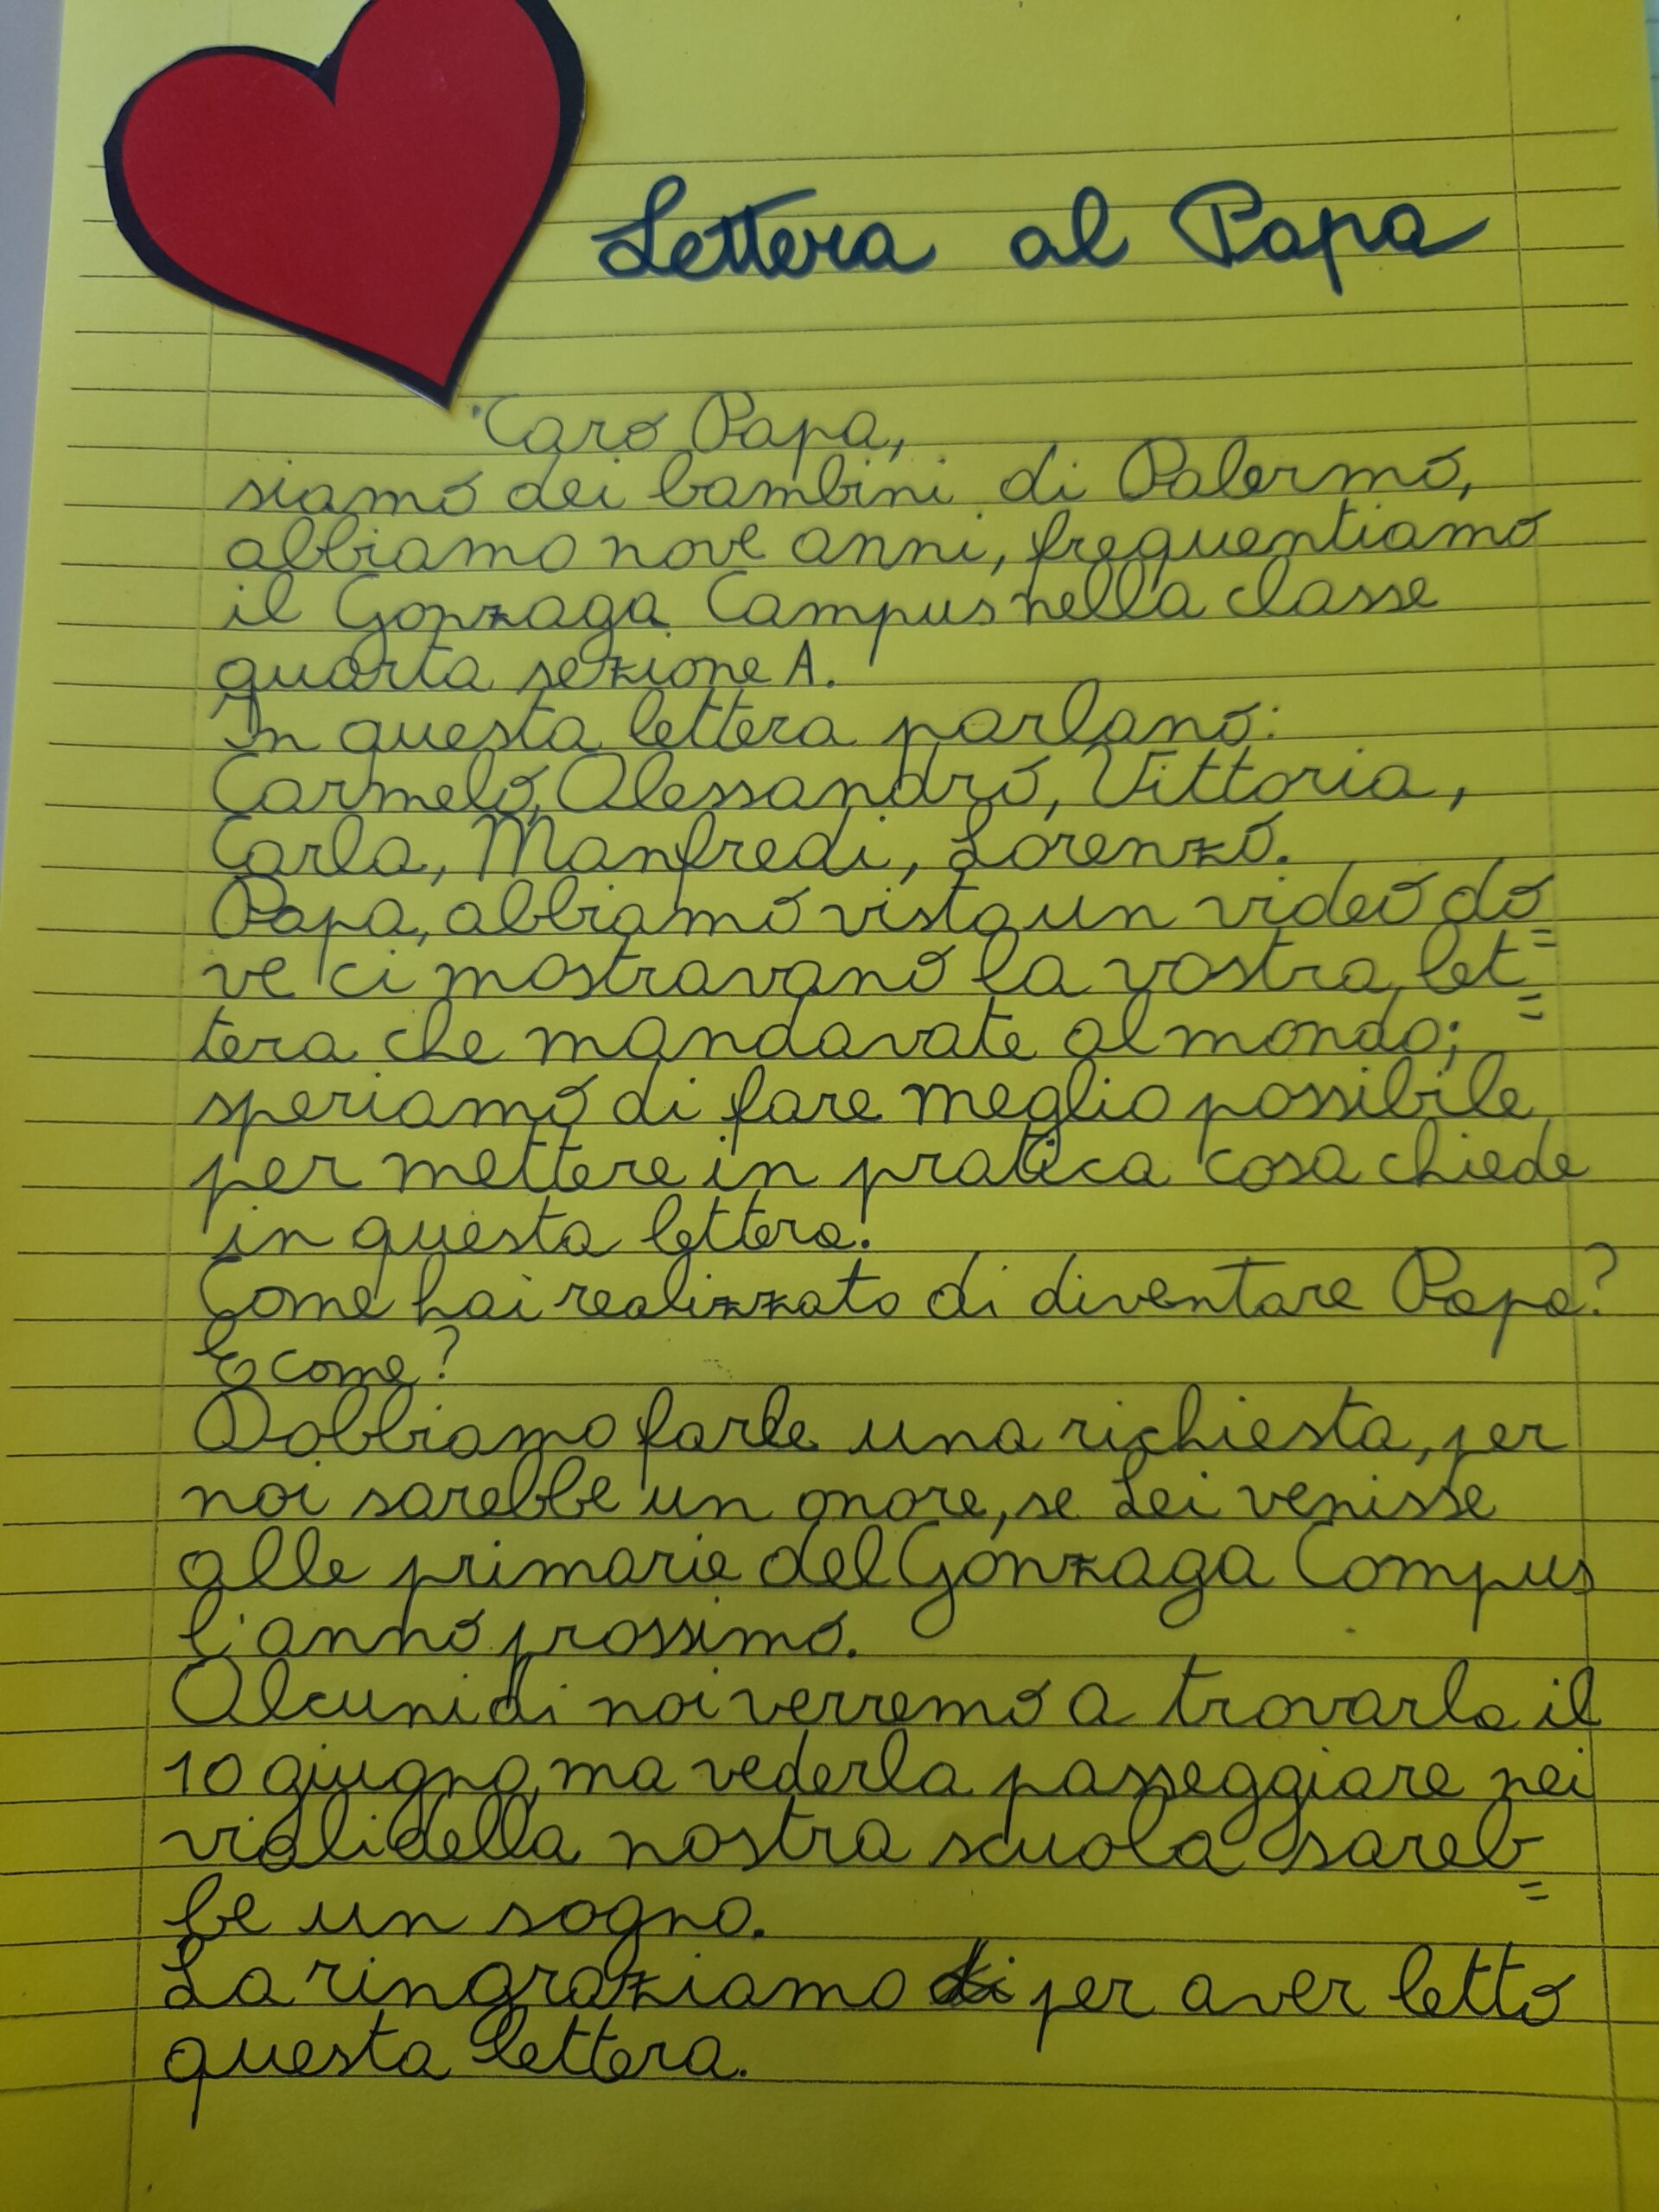 Lettera al Papa
Caro Papa,
siamo dei bambini di Palermo,
abbiamo nove anni, frequentiamo
il Gonzaga Campus nella classe
quarta sezione A.
In questa lettera parlano:
Carmelo, Alessandro, Vittoria,
Carla, Manfredi, Lorenzo.
Papa, abbiamo visto un video do=
ve ci mostravano la vostra let=
tera che mandavate al mondo;
speriamo di fare meglio possibile
per mettere in pratica cosa chiede
in questa lettera.
Come hai realizzato di diventare Papa?
E come?
Dobbiamo farle una richiesta, per
noi sarebbe un onore, se Lei venisse
alle primarie del Gonzaga Campus
l'anno prossimo.
Alcuni di noi verremo a trovarla il
10 giugno, ma vederla passeggiare nei
viali della nostra scuola sareb=
be un sogno.
La ringraziamo di per aver letto
questa lettera.